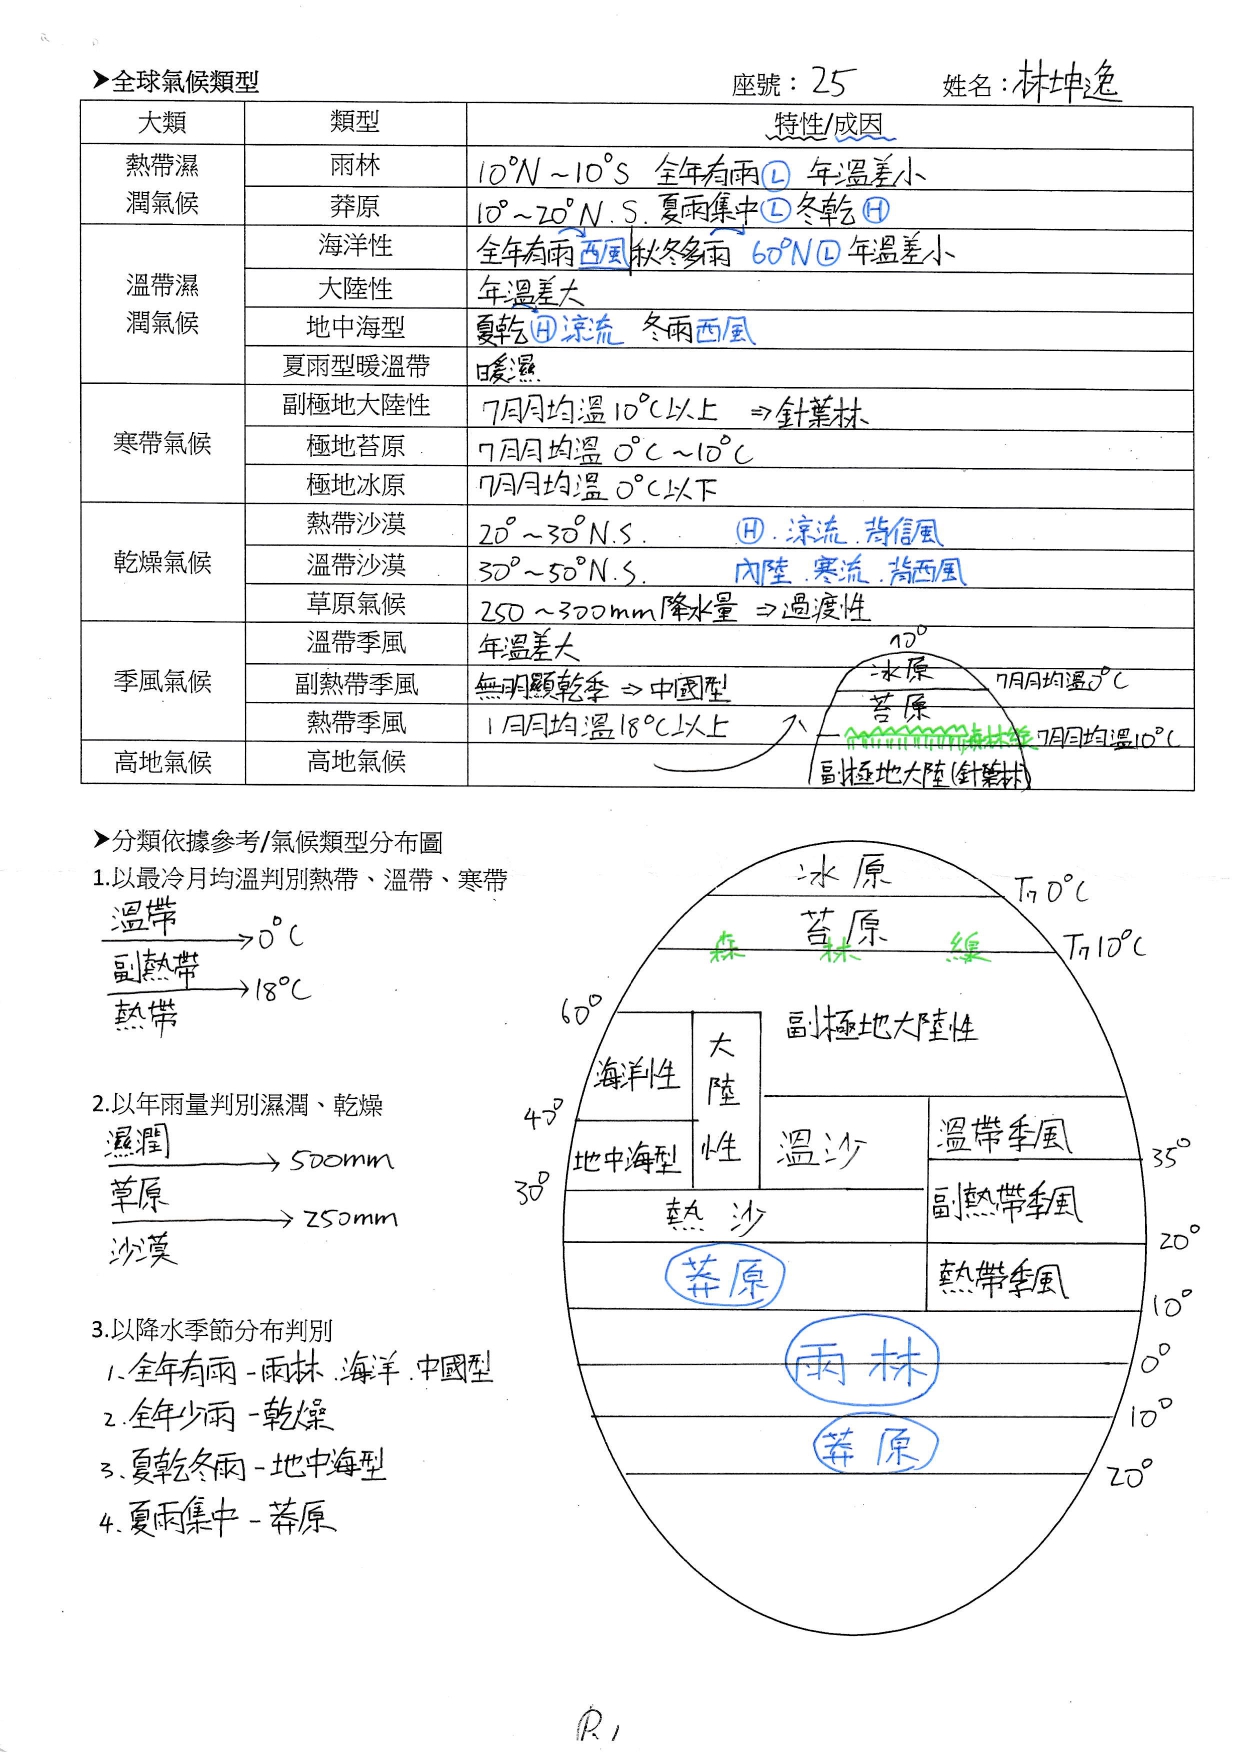 ➤全球氣候類型 座號：25 姓名：林坤逸
大類 類型 特性/成因
熱帶濕潤氣候 雨林 10°N～10°S 全年有雨Ⓛ 年溫差小
莽原 10°～20°N.S. 夏雨集中Ⓛ冬乾Ⓗ
溫帶濕潤氣候 海洋性 全年有雨西風|秋冬多雨 60°NⓁ年溫差小
大陸性 年溫差大
地中海型 夏乾Ⓗ涼流 冬雨西風
夏雨型暖溫帶 暖濕
寒帶氣候 副極地大陸性 7月月均溫10°C以上 ⇒針葉林
極地苔原 7月月均溫 0°C～10°C
極地冰原 7月月均溫 0°C以下
乾燥氣候 熱帶沙漠 20°～30°N.S. Ⓗ.涼流.背信風
溫帶沙漠 30°～50°N.S. 內陸.寒流.背西風
草原氣候 250～300mm降水量 ⇒過渡性
季風氣候 溫帶季風 年溫差大
副熱帶季風 無明顯乾季⇒中國型
熱帶季風 1月月均溫18°C以上
高地氣候 高地氣候
冰原 7月月均溫0°C
苔原
森林線 7月月均溫10°C
副極地大陸(針葉林)
➤分類依據參考/氣候類型分布圖
1.以最冷月均溫判別熱帶、溫帶、寒帶
溫帶
→0°C
副熱帶
→18°C
熱帶
2.以年雨量判別濕潤、乾燥
濕潤
→500mm
草原
→250mm
沙漠
3.以降水季節分布判別
1、全年有雨-雨林.海洋.中國型
2.全年少雨-乾燥
3、夏乾冬雨-地中海型
4、夏雨集中-莽原
冰原 T7 0°C
苔原
森林線 T7 10°C
60° 副極地大陸性
海洋性 大陸性
40° 溫帶季風
地中海型 溫沙 35°
30° 副熱帶季風
熱沙 20°
莽原 熱帶季風
10°
雨林 0°
10°
莽原
20°
P.1